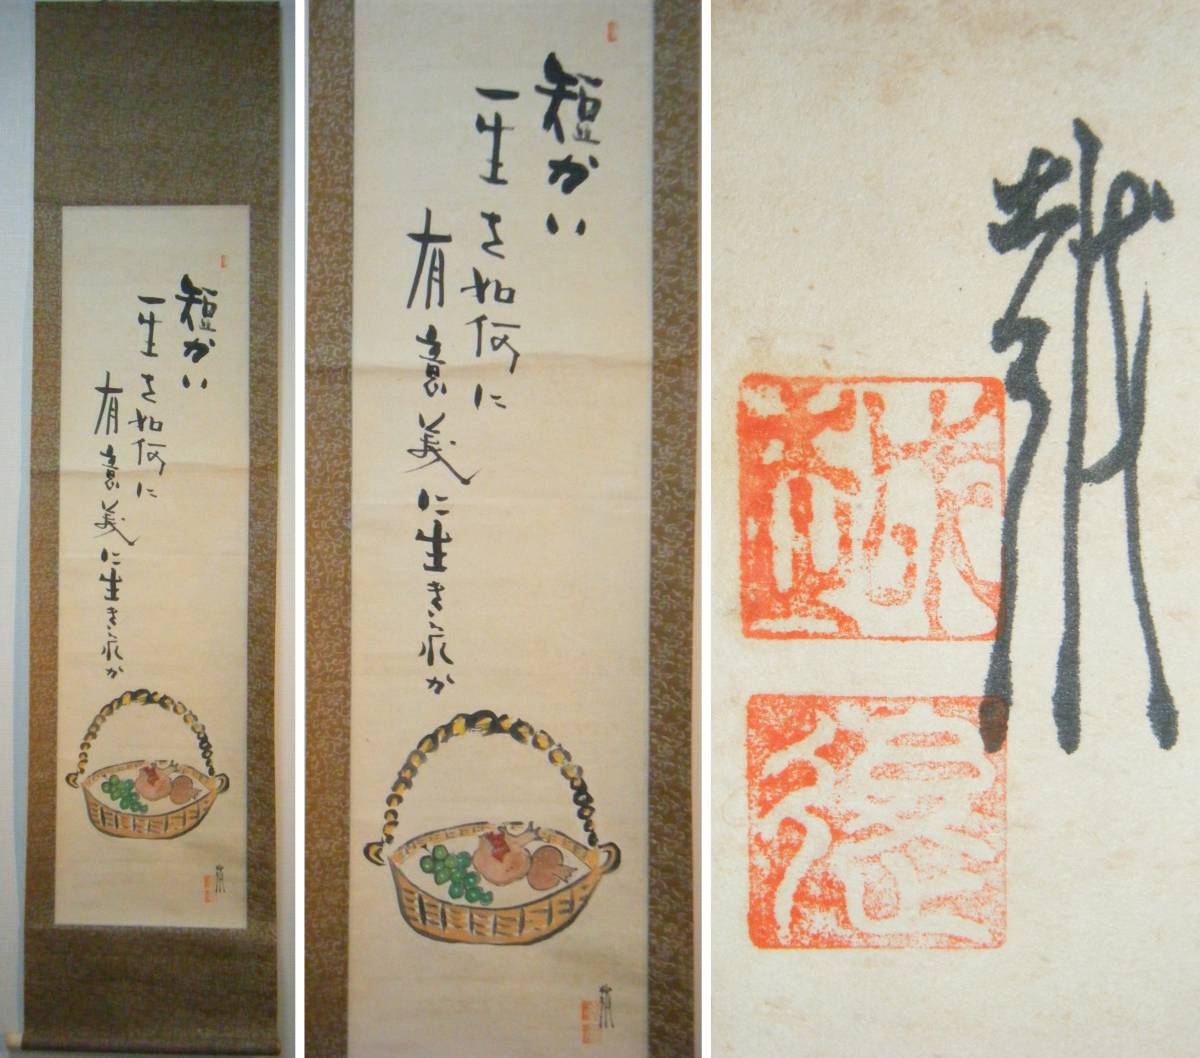 短かい
一生を如何に
有意義に生き か
短かい
一生を如何に
有意義に生き か